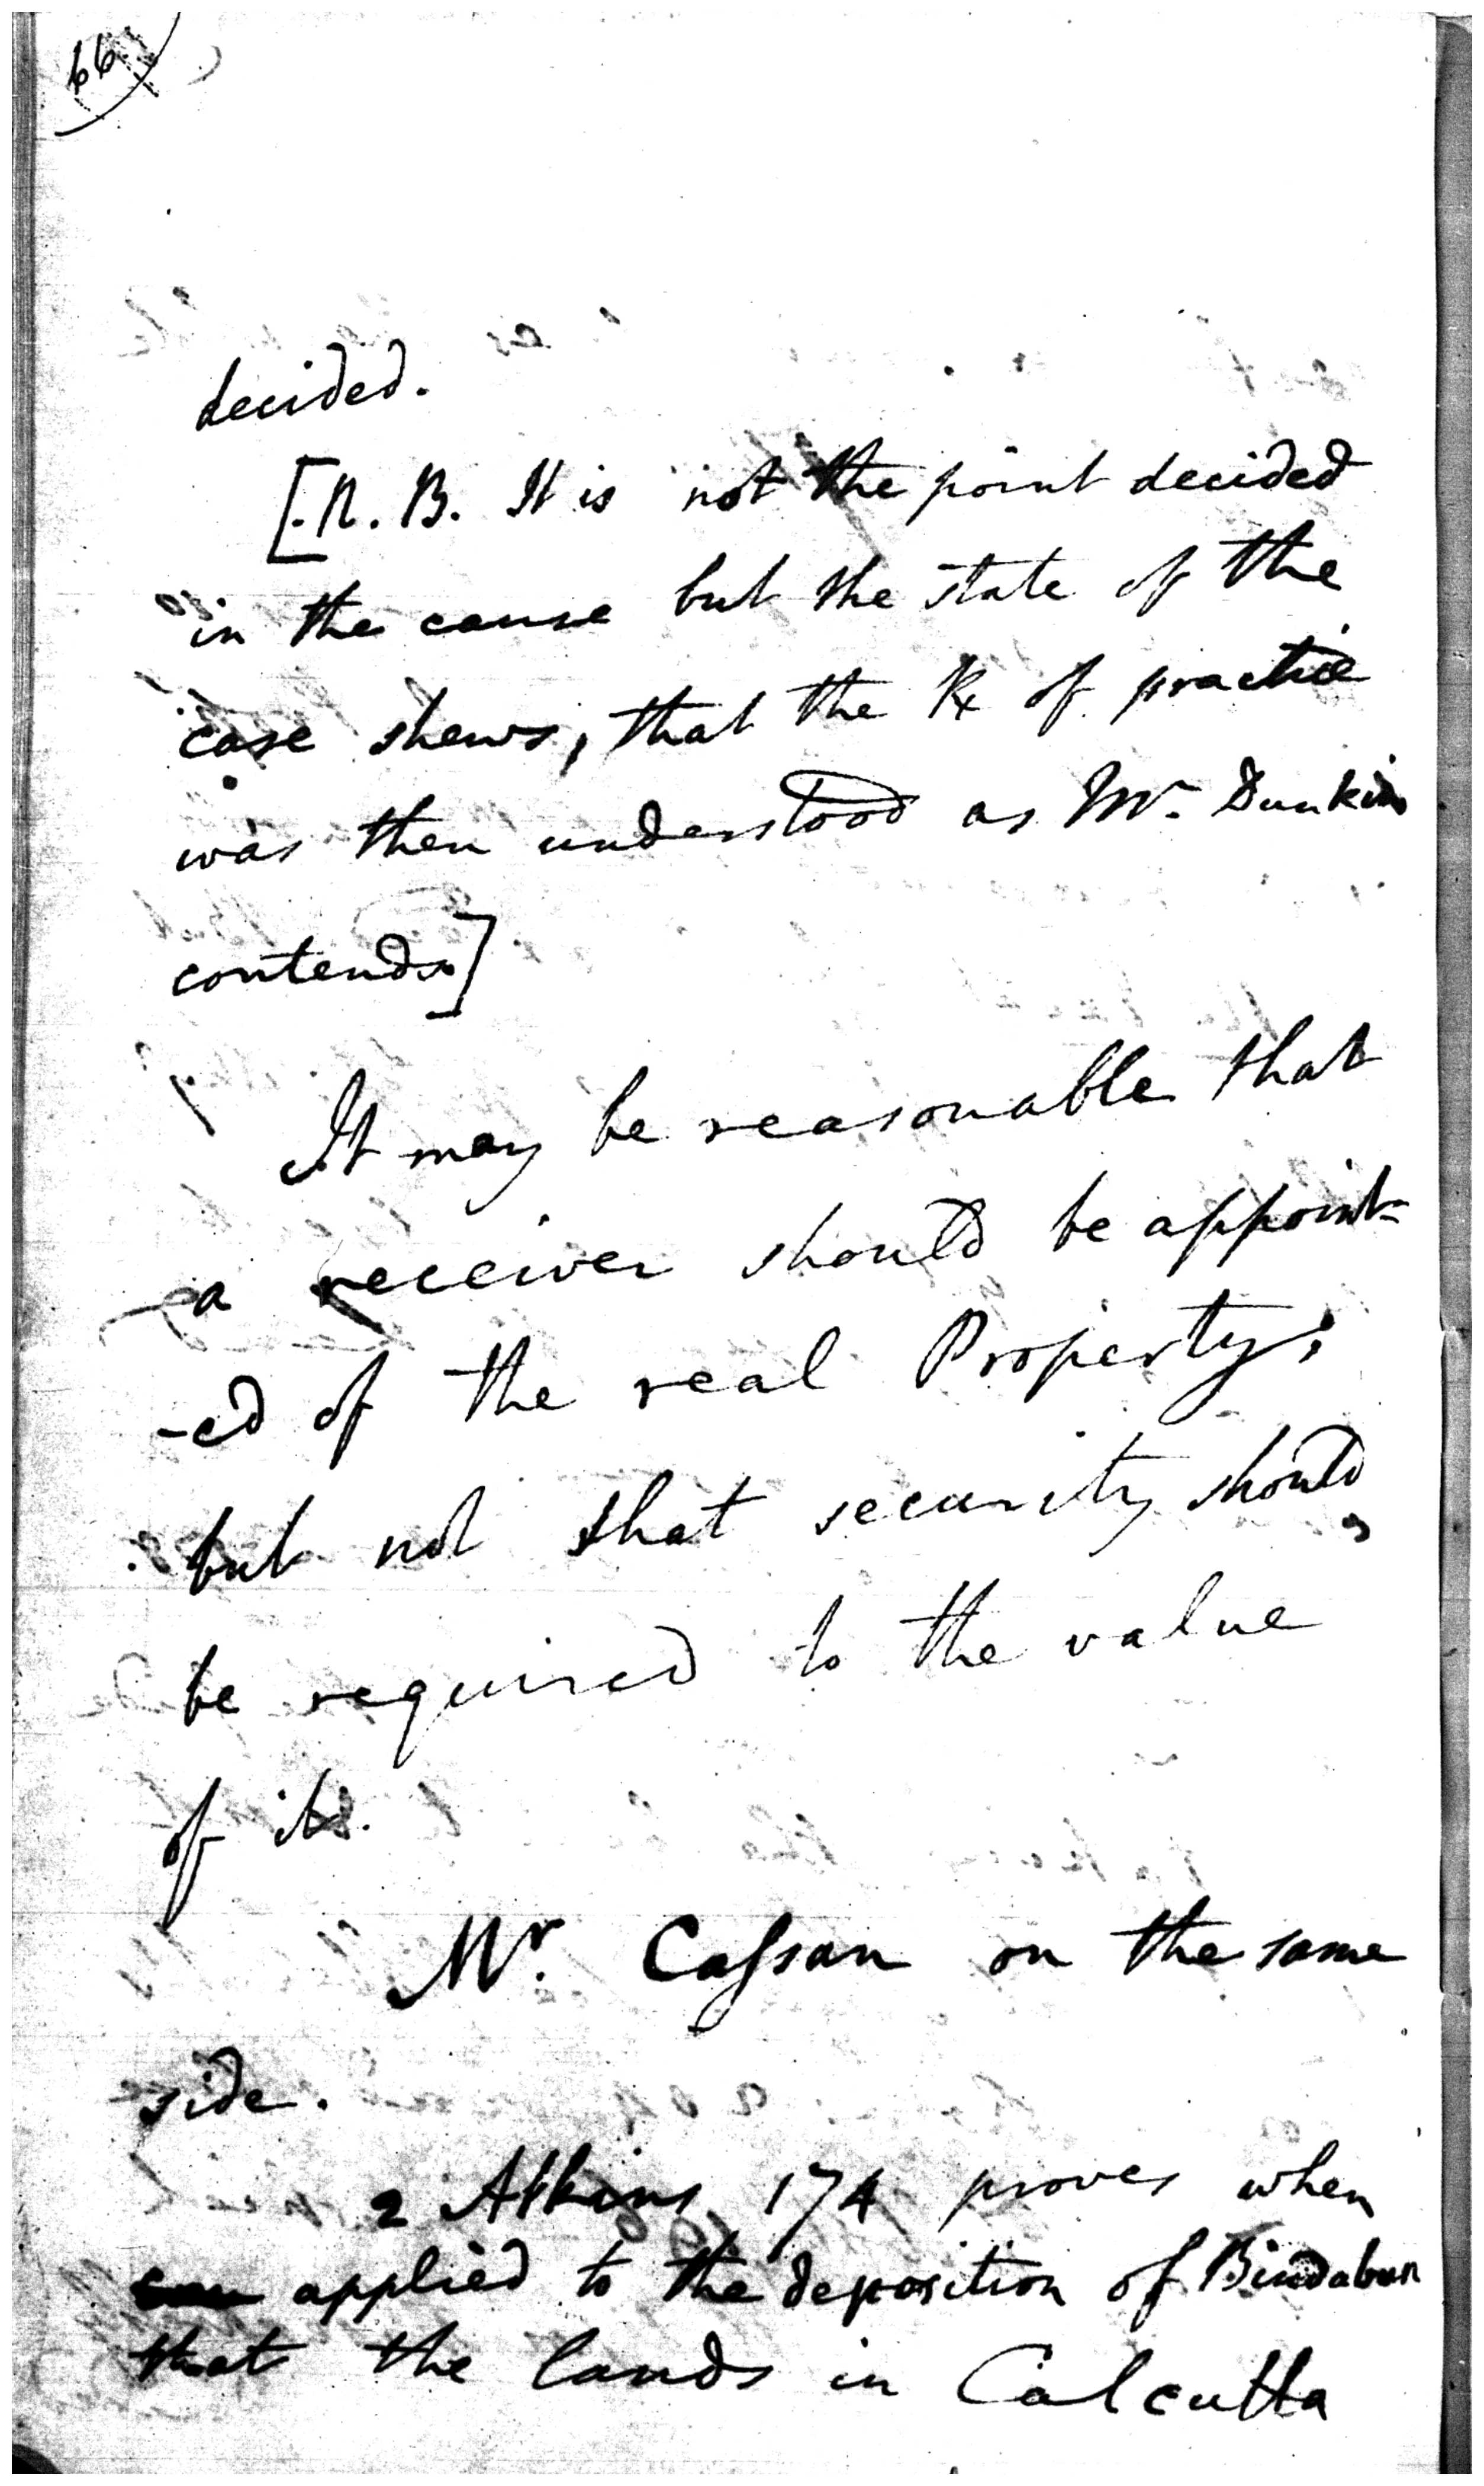 66
decided.
[N. B. It is not the point decided
in the cause but the state of the
case shews, that the Rx of practice
was then understood as Mr. Dunkin
contends]
It may be reasonable that
a receiver should be appoint=
-ed of the real Property;
but not that security should
be required to the value
of it.
Mr. Caſsan on the same
side.
2 Atkins 174 proves when
applied to the deposition of Bindabun
that the lands in Calcutta